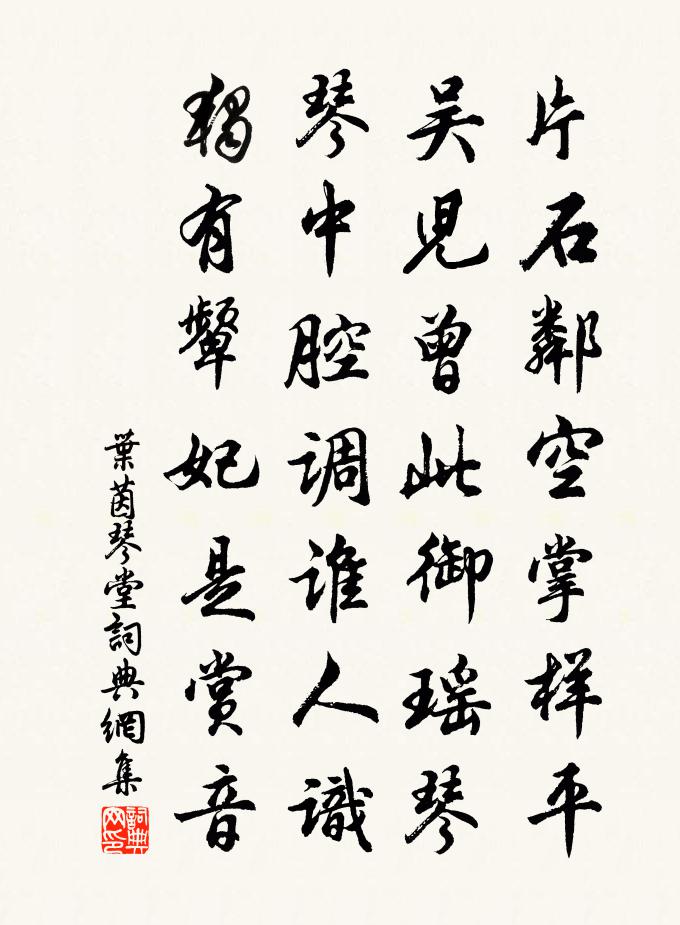 片石鄰空掌样平
吳児曾此御瑶琴
琴中腔调誰人識
獨有顰妃是赏音
葉茵琴堂詞典網集
詞典网